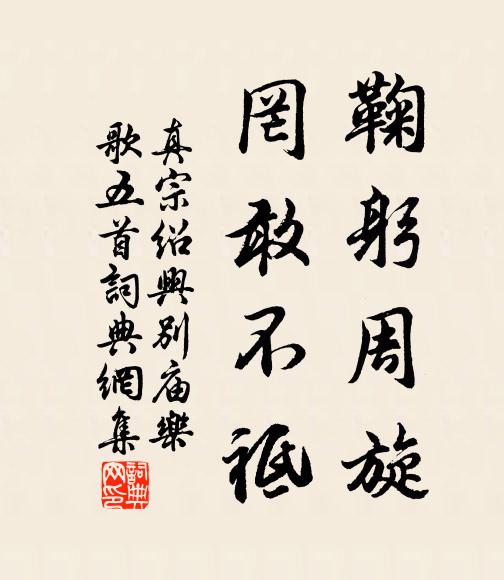 鞠躬周旋
罔敢不祗
真宗紹興別庙樂
歌五首詞典網集
詞典网印